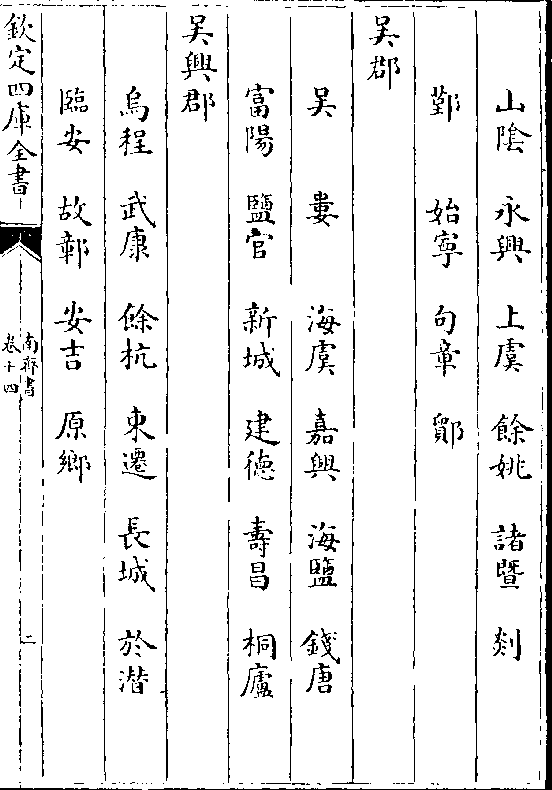 山陰 永興 上虞 餘姚 諸暨 剡
鄞 始寧 句章 鄮
吴郡
吴 婁 海虞 嘉興 海鹽 錢唐
富陽 鹽官 新城 建德 壽昌 桐廬
吴興郡
烏程 武康 餘杭 東遷 長城 於潛
臨安 故鄣 安吉 原鄉
欽定四庫全書
南齊書
卷十四
二